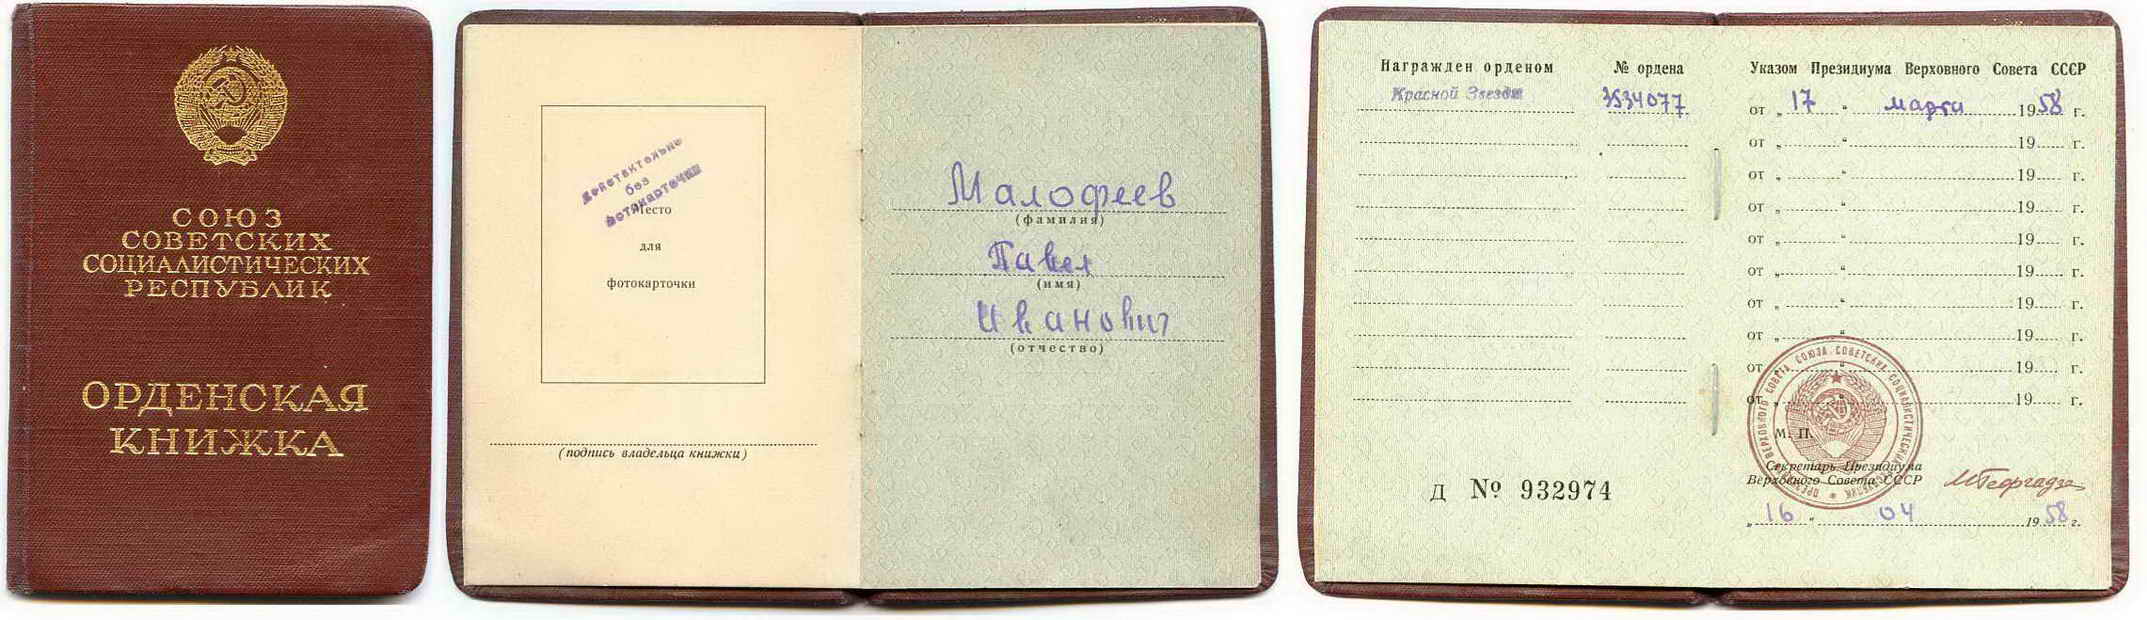 СОЮЗ
СОВЕТСКИХ
СОЦИАЛИСТИЧЕСКИХ
РЕСПУБЛИК
ОРДЕНСКАЯ
КНИЖКА
Действительно
без
фотокарточки
Место
для
фотокарточки
(подпись владельца книжки)
Малофеев
(фамилия)
Павел
(имя)
Иванович
(отчество)
Награжден орденом № ордена
Красной Звезды 3534077
Д № 932974
Указом Президиума Верховного Совета СССР
от „ 17 “ марта 1958 г.
от „ “ 19 г.
от „ “ 19 г.
от „ “ 19 г.
от „ “ 19 г.
от „ “ 19 г.
от „ “ 19 г.
от „ “ 19 г.
от „ “ 19 г.
от „ “ 19 г.
М. П.
Секретарь Президиума
Верховного Совета СССР МГеоргадзе
„ 16 “ 04 1958 г.
ВЕРХОВНОГО СОВЕТА СОЮЗА СОВЕТСКИХ СОЦИАЛИСТИЧЕСКИХ